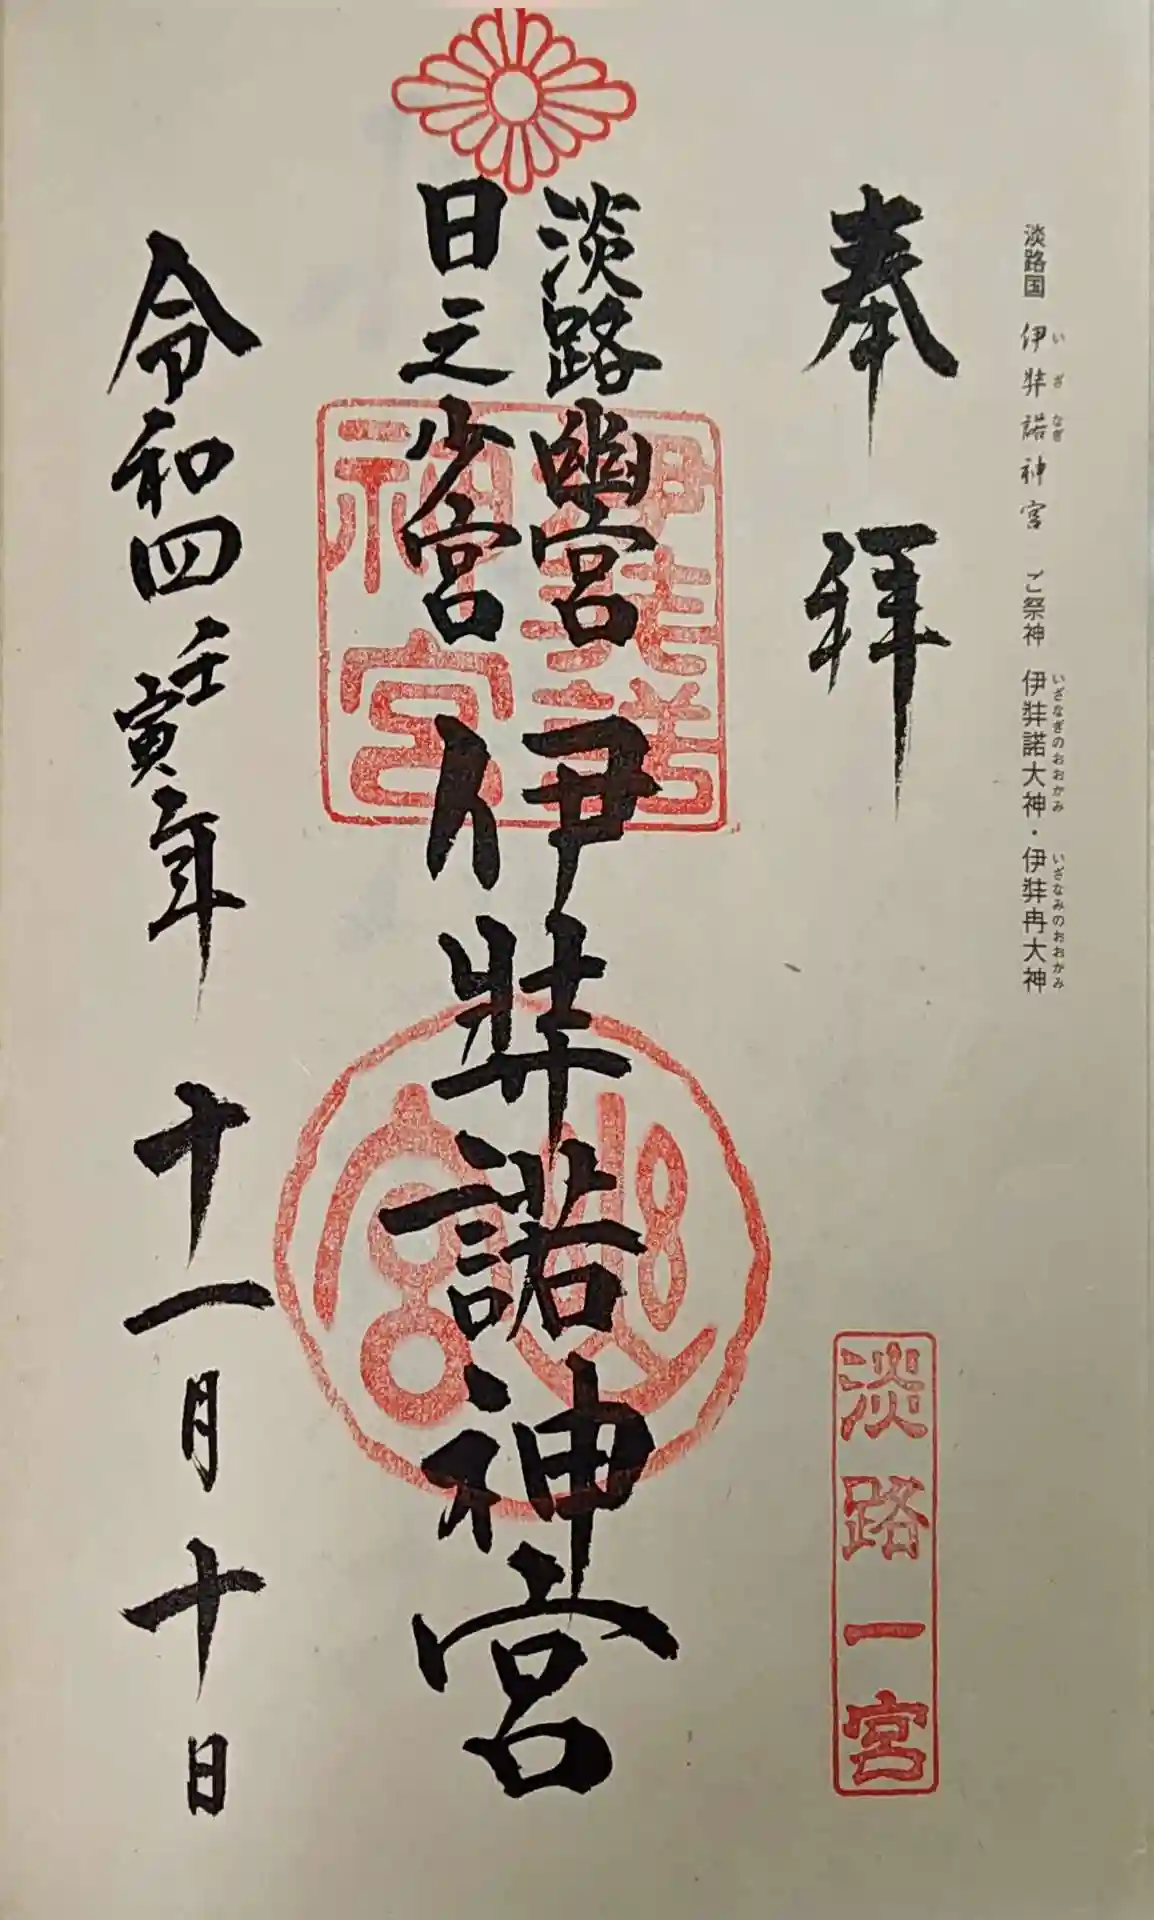 淡路国 伊弉諾神宮 ご祭神 伊弉諾大神・伊弉冉大神
い ざ なぎ いざなぎのおおかみ いざなみのおおかみ
奉拝
淡路一宮
淡路幽宮
日之少宮
伊弉諾神宮
伊弉諾
神宮
幽
宮
令和四壬寅年 十一月十日